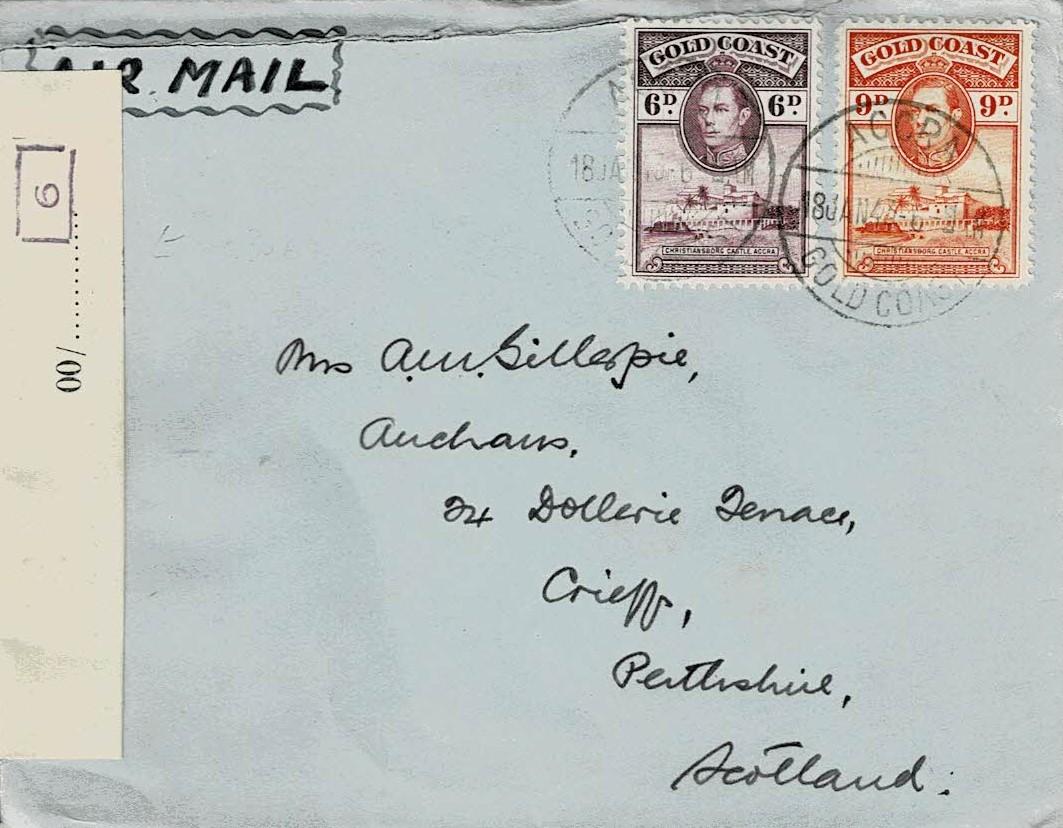 AIR MAIL
6
00/............
GOLD COAST
6D 6D
CHRISTIANSBORG CASTLE, ACCRA
GOLD COAST
9D 9D
CHRISTIANSBORG CASTLE, ACCRA
18JA
ACCRA
18JAN43
GOLD COAST
Mrs A.M. Gillespie,
24 Dollerie Terrace,
Crieff,
Perthshire,
Scotland.